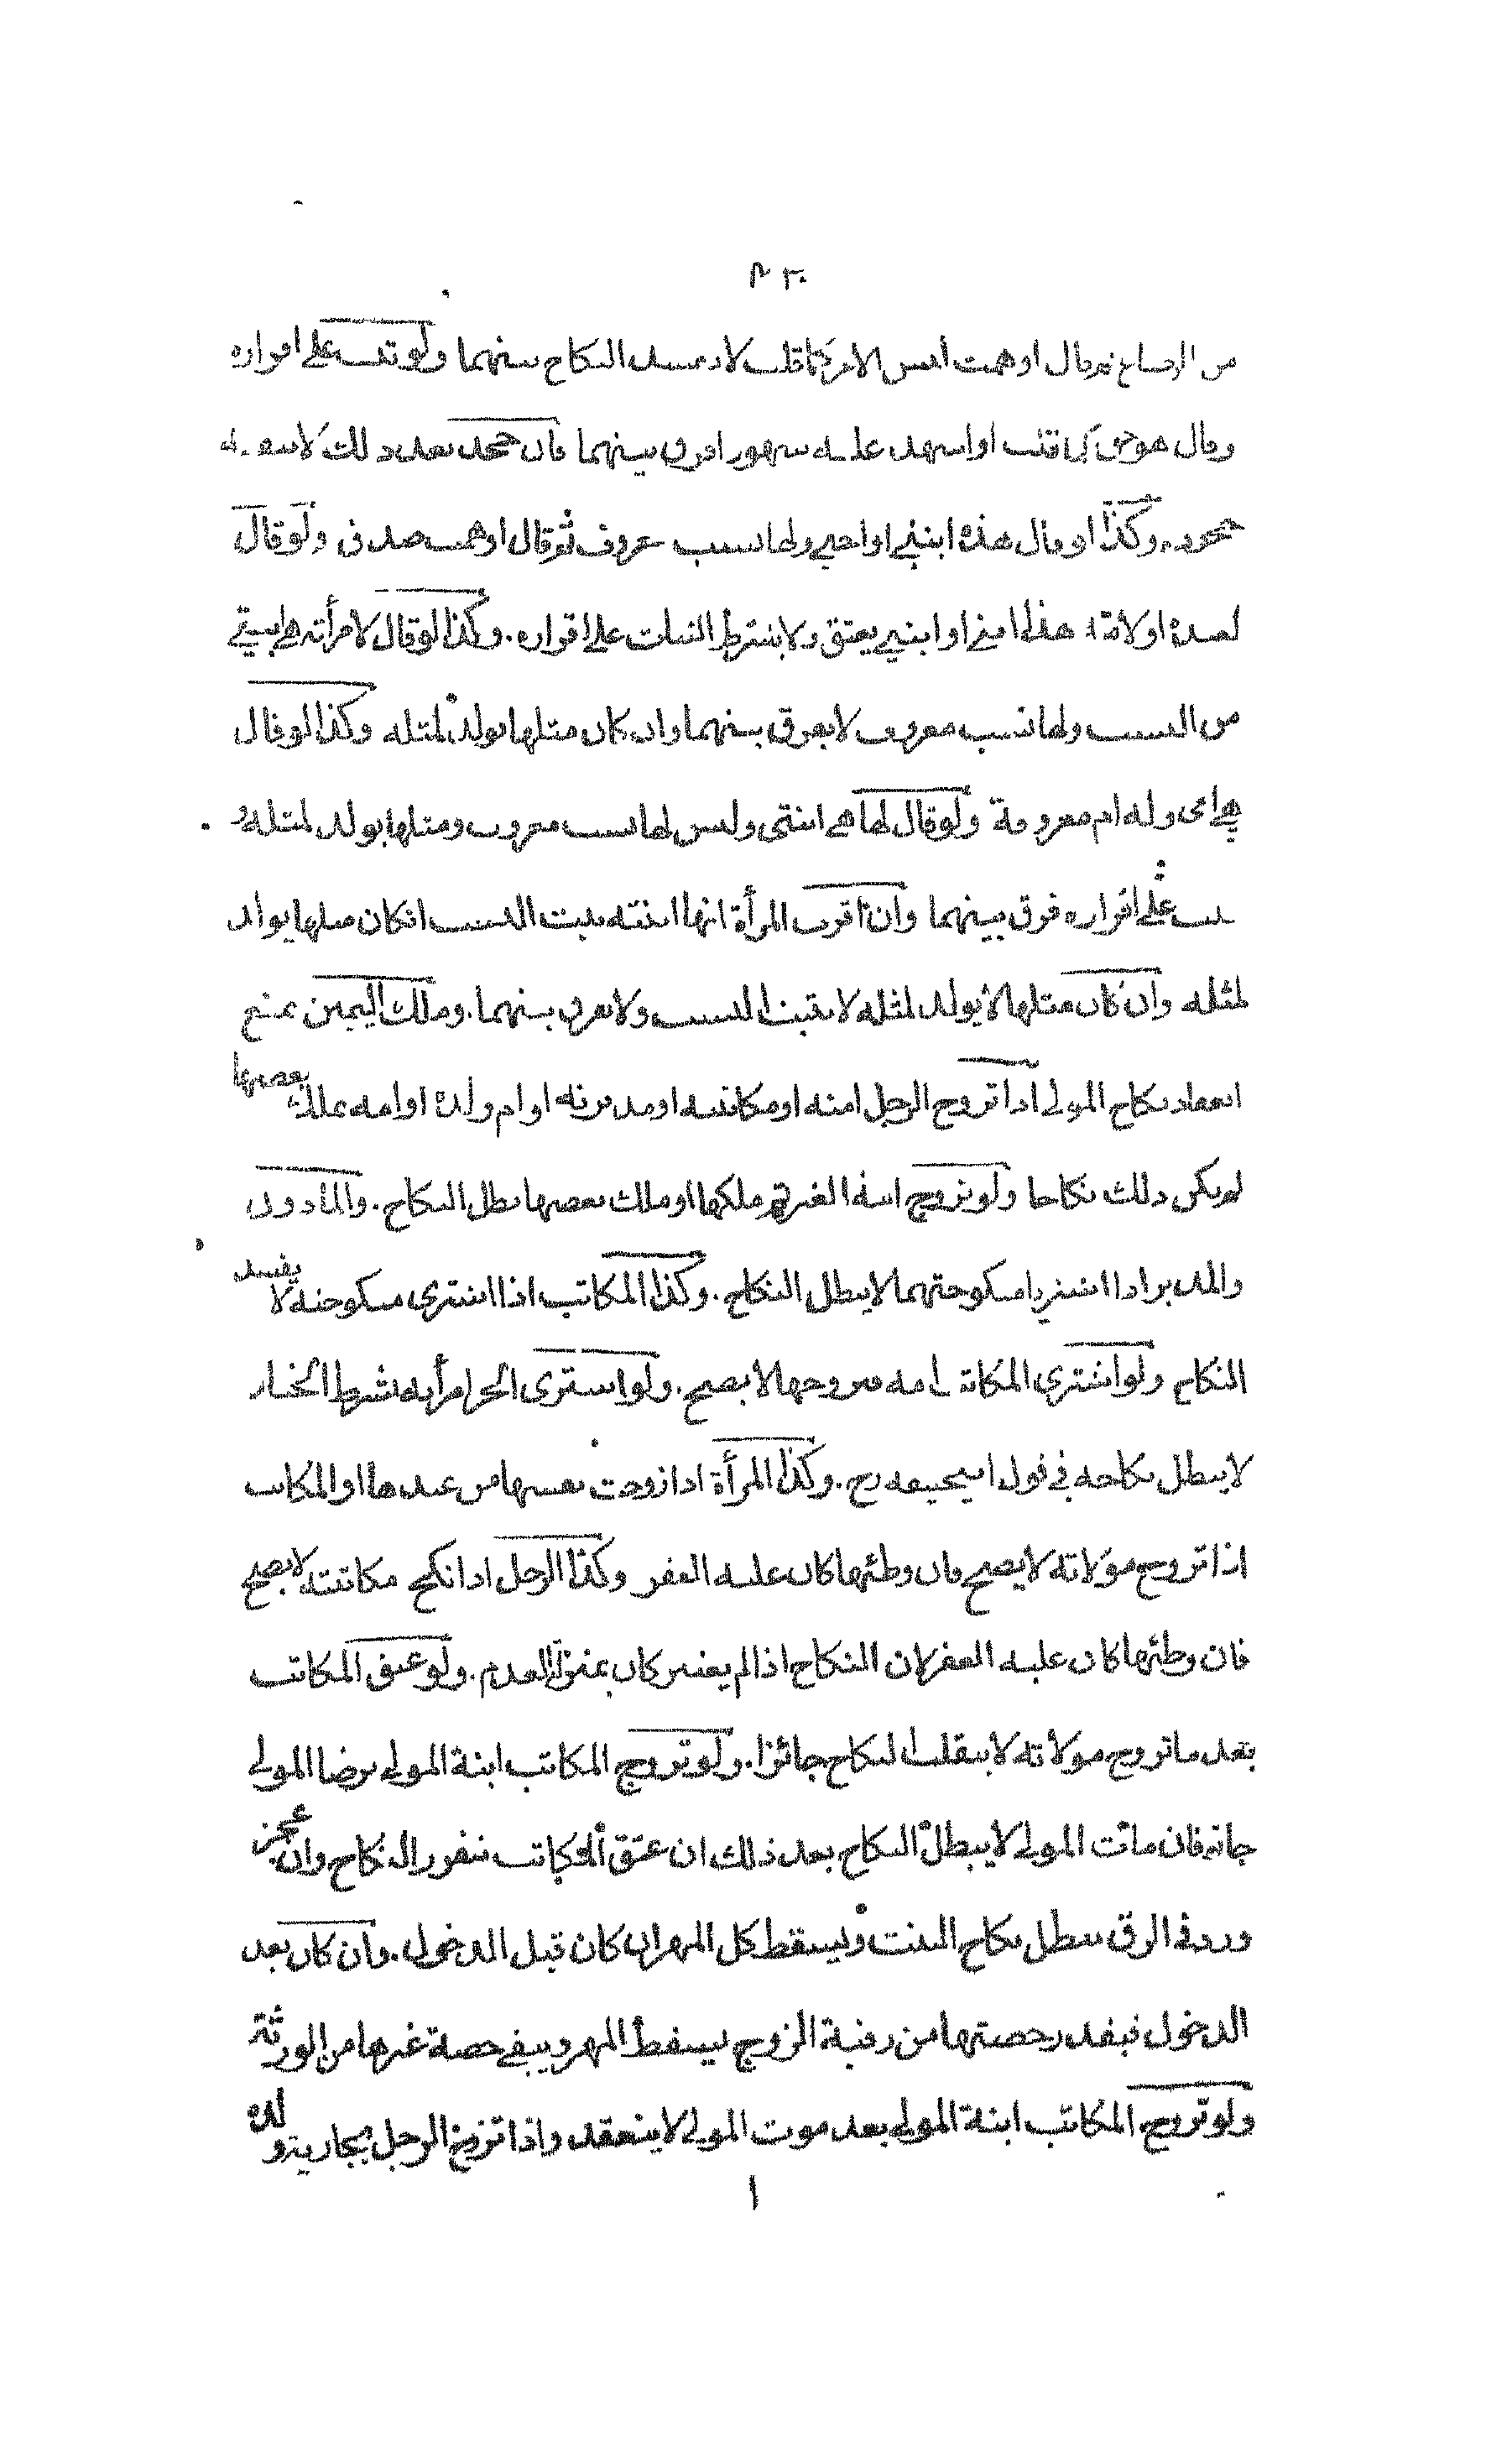 من الرضاع ثم قال اوهمت ليس الامر كما قلت لا يفسد النكاح بينهما ولو ثبت على اقراره
وقال هو حق كما قلت او اشهد عليه شهود افرق بينهما فان جحد بعد ذلك لا ينفعه
جحوده وكذا لو قال هذه ابنتي او اختي ولها نسب معروف ثم قال اوهمت صدق ولو قال
لعبده او لامته هذا ابني او ابنتي يعتق ولا يشترط الثبات على اقراره. وكذا لو قال لامرأته هي ابنتي
من النسب ولها نسب معروف لا يفرق بينهما وان كان مثلها يولد لمثله وكذا لو قال
هي امي وله ام معروفة ولو قال لها هي ابنتي وليس لها نسب معروف ومثلها يولد لمثله و
ثبت على اقراره فرق بينهما وان اقرت المرأة انها ابنته يثبت النسب ان كان مثلها يولد
لمثله وان كان مثلها لا يولد لمثله لا يثبت النسب ولا يفرق بينهما. وملك اليمين يمنع
انعقاد نكاح المولى اذا تزوج الرجل امته او مكاتبته او مدبرته او ام ولده او امه يملك بعضها
لم يكن ذلك نكاحا ولو تزوج امة الغير ثم ملكها او ملك بعضها بطل النكاح. والمأذون
والمدبر اذا اشتريا منكوحتهما لا يبطل النكاح. وكذا المكاتب اذا اشترى منكوحته لا يفسد
النكاح ولو اشترى المكاتب امه فتزوجها لا يصح. ولو اشترى الحر امرأته بشرط الخيار
لا يبطل نكاحه في قول ابيحنيفه رح. وكذا المرأة اذا زوجت نفسها من عبدها او المكاتب
اذا تزوج مولاته لا يصح فان وطئها كان عليه العقر وكذا الرجل اذا نكح مكاتبته لا يصح
فان وطئها كان عليه العقر لان النكاح اذا لم يعتبر كان بمنزلة العدم. ولو عتق المكاتب
بعد ما تزوج مولاته لا ينقلب النكاح جائزا. ولو تزوج المكاتب ابنة المولى برضا المولى
جاز فان مات المولى لا يبطل النكاح بعد ذلك ان عتق المكاتب تقرر النكاح وان عجز
ورد في الرق يبطل نكاح البنت ويسقط كل المهر ان كان قبل الدخول. وان كان بعد
الدخول فبقدر حصتها من رقبة الزوج يسقط المهر ويبقى حصة غيرها من الورثة
ولو تزوج المكاتب ابنة المولى بعد موت المولى لا ينعقد واذا تزوج الرجل بجارية ولده